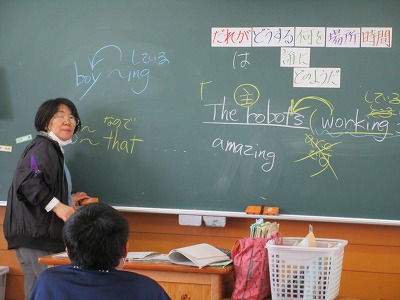 だれが どうする 何を 場所 時間
は 誰に
どのようだ
している
boy ~ing
なので
so~ that ......
主
している
「The robots (working
are
amazing